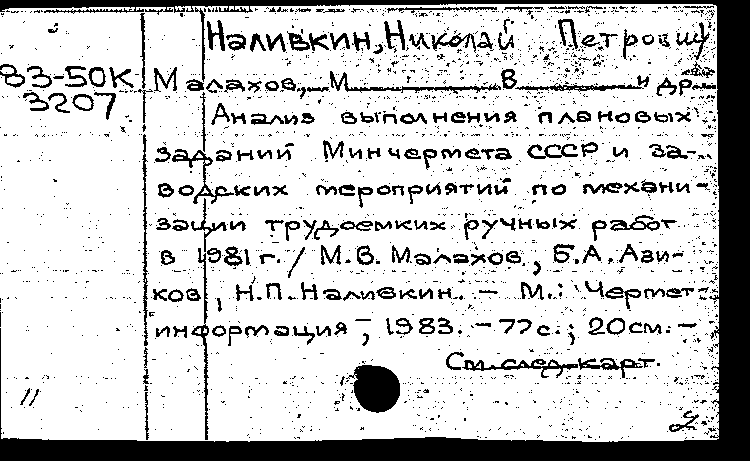 Наливкин, Николай Петрович
83-50К
3207
Малахов, М В и др.
Анализ выполнения плановых
заданий Минчермета СССР и за-
водских мероприятий по механи-
зации трудоемких ручных работ
в 1981 г. / М.В. Малахов, Б.А. Ази-
ков, Н.П. Наливкин. - М.: Чермет-
информация, 1983. - 77 с.; 20 см. -
См. след. карт.
11